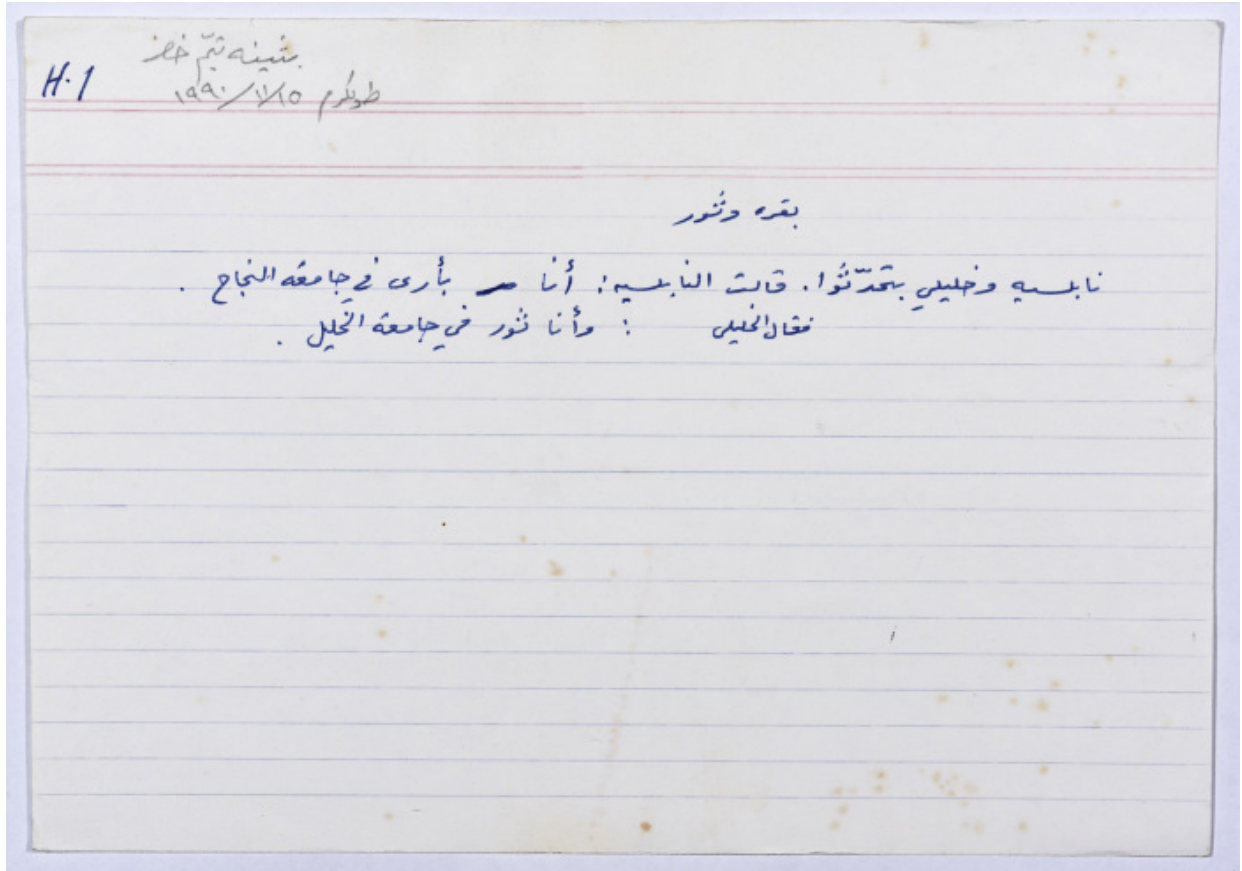 H.1
بثينه تيّم خضر
طولكرم ١٩٩٠/١١/١٥
بقره وثور
نابلسيه وخليلي بتحدّثوا. قالت النابلسيه: أنا بأرى في جامعه النجاح .
فقال الخليلي : وأنا ثور في جامعة الخليل .